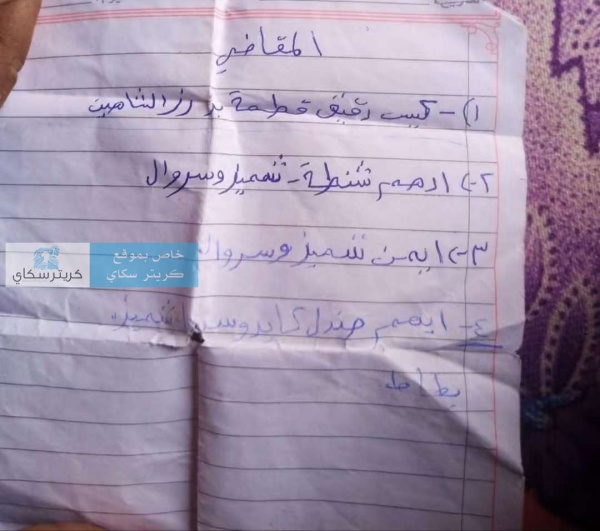 المقاضي
١)- كيس دقيق قطمة بر رز الشاهين
٢-) ادهم شنطة - شميز وسروال
٣-) ايمن شميز وسروال
٤- ايهم صندل شميز
بطاط
خاص بموقع
كريتر سكاي
كريترسكاي